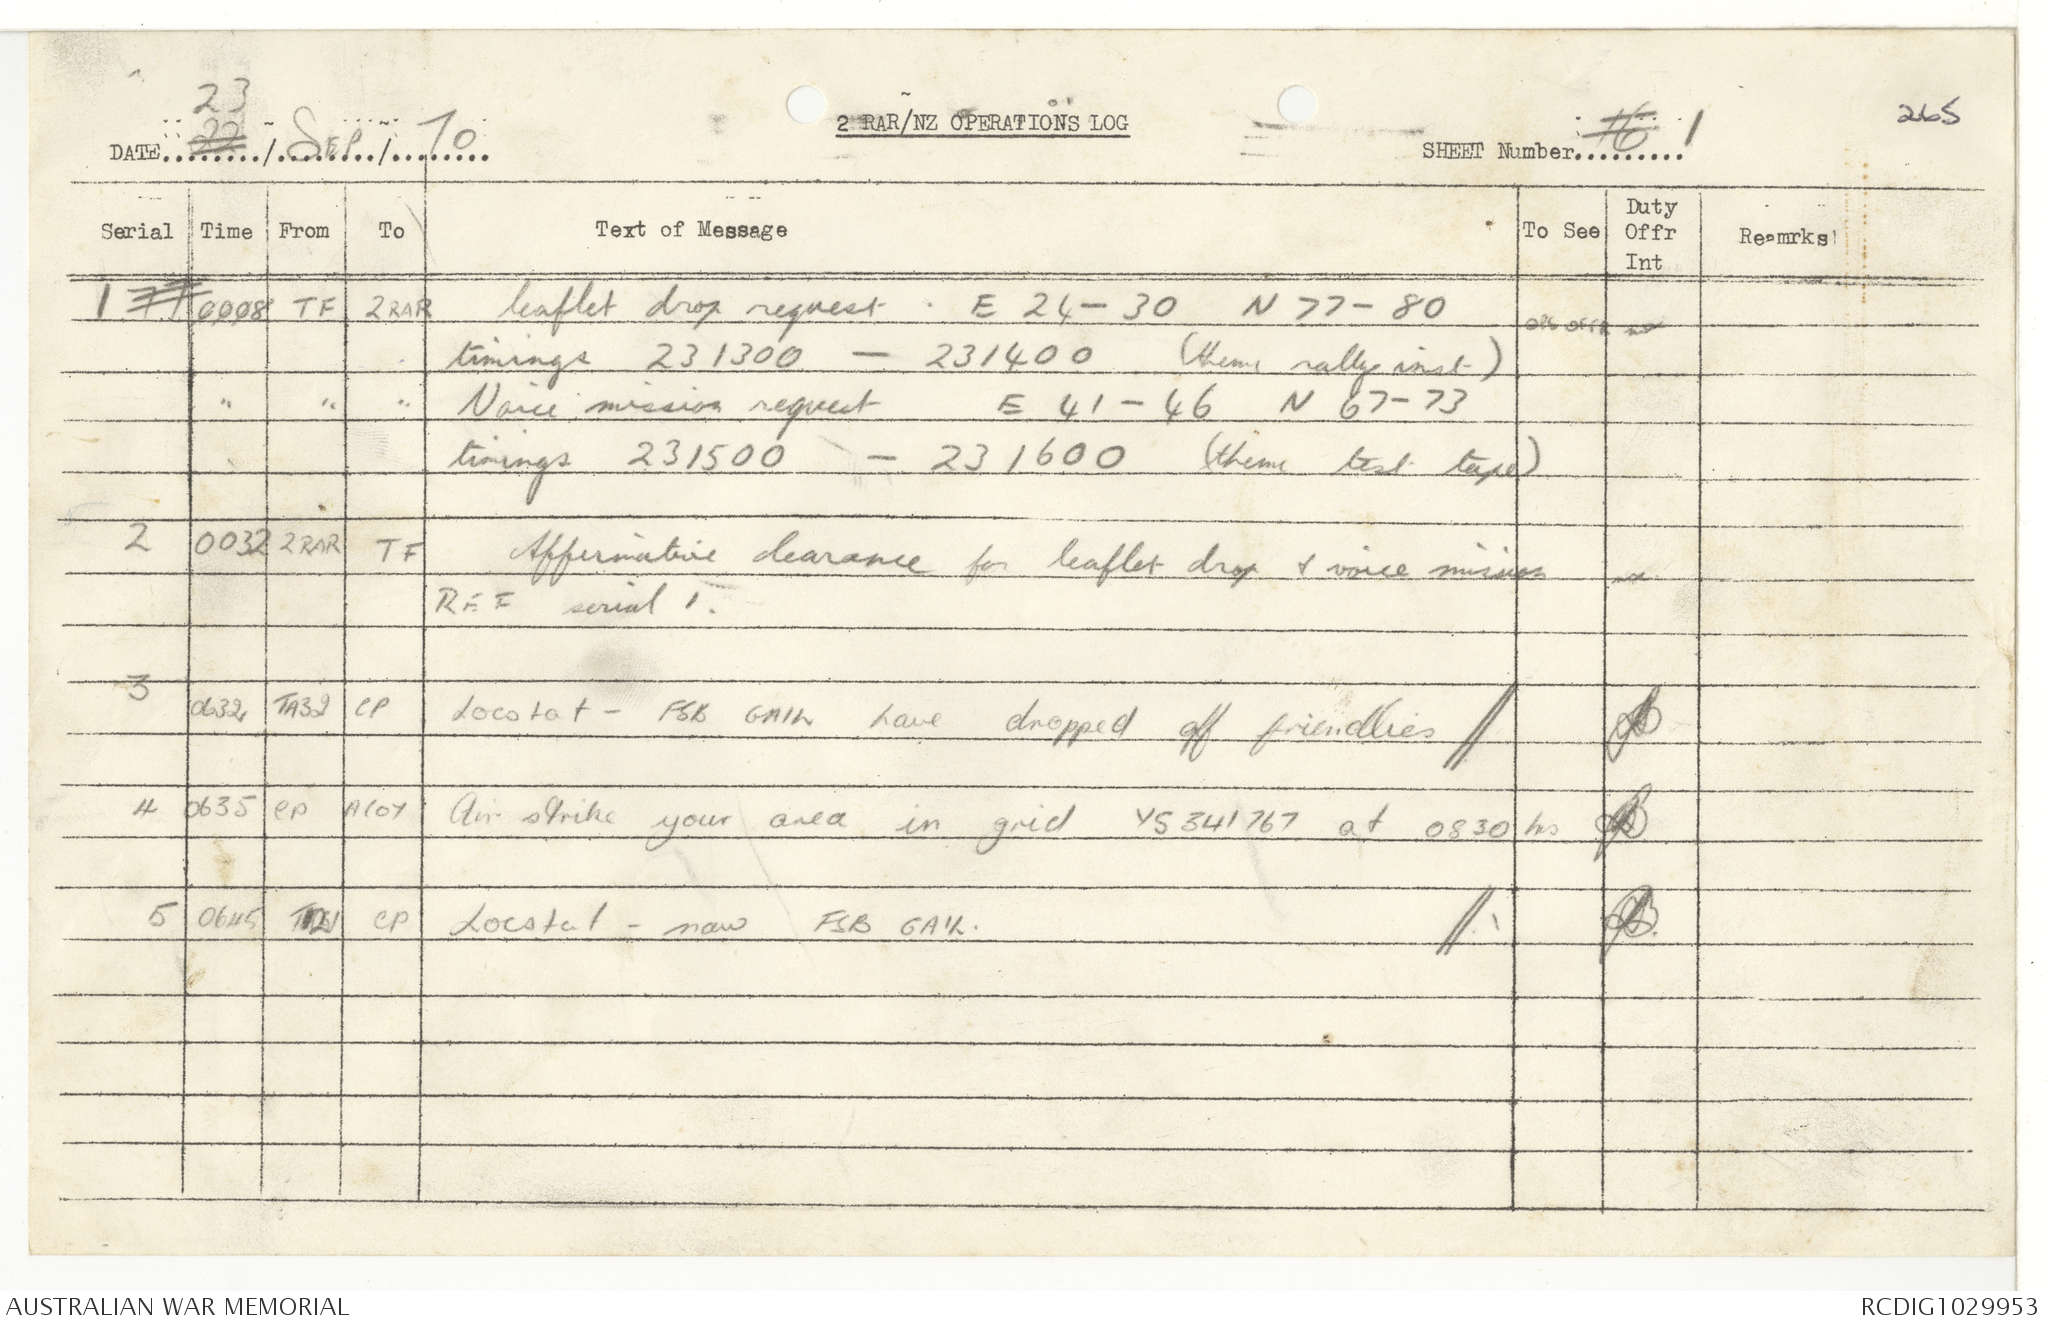 265
23
DATE 22/Sep/70
2 RAR/NZ OPERATIONS LOG
SHEET Number 1
Serial Time From To Text of Message To See Duty Offr Int Reamrks
1 77 0008 TF 2RAR leaflet drop request. E 24-30 N 77-80 OPS OFFR
timings 231300 — 231400 (theme rally inst)
" " " Voice mission request E 41-46 N 67-73
timings 231500 — 231600 (theme test tape)
2 0032 2RAR TF Affirmative clearance for leaflet drop & voice mission
REF serial 1.
3 0632 TA32 CP Locstat - FSB GAIL have dropped off friendlies //
4 0635 CP ALOY Air strike your area in grid YS341767 at 0830 hrs
5 0645 CP Locstat - now FSB GAIL. //
AUSTRALIAN WAR MEMORIAL
RCDIG1029953